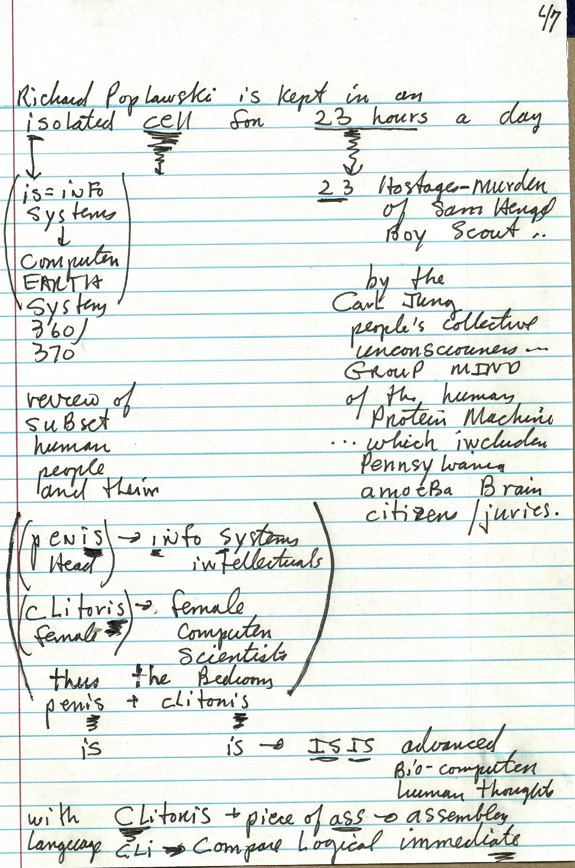 4/7
Richard Poplawski is kept in an
isolated cell for 23 hours a day
(is = info
systems
↓
Computer
EARTH
System
360/
370
review of
subset
human
people
and their
23 Hostages-murder
of Sam
Boy Scout ..
by the
Carl Jung
people's collective
unconsciouness ---
GROUP MIND
of the human
Protein Machine
... which includes
Pennsylvania
amoeBa Brain
citizen / juries.
(penis → info systems
Head) intellectuals
(cLitoris) → female
female computer
scientists
thus the Bedroom
penis + clitoris
is is → ISIS advanced
Bio-computer
human thought
with CLitoris + piece of ass → assembler
language CLi → Compare Logical immediate